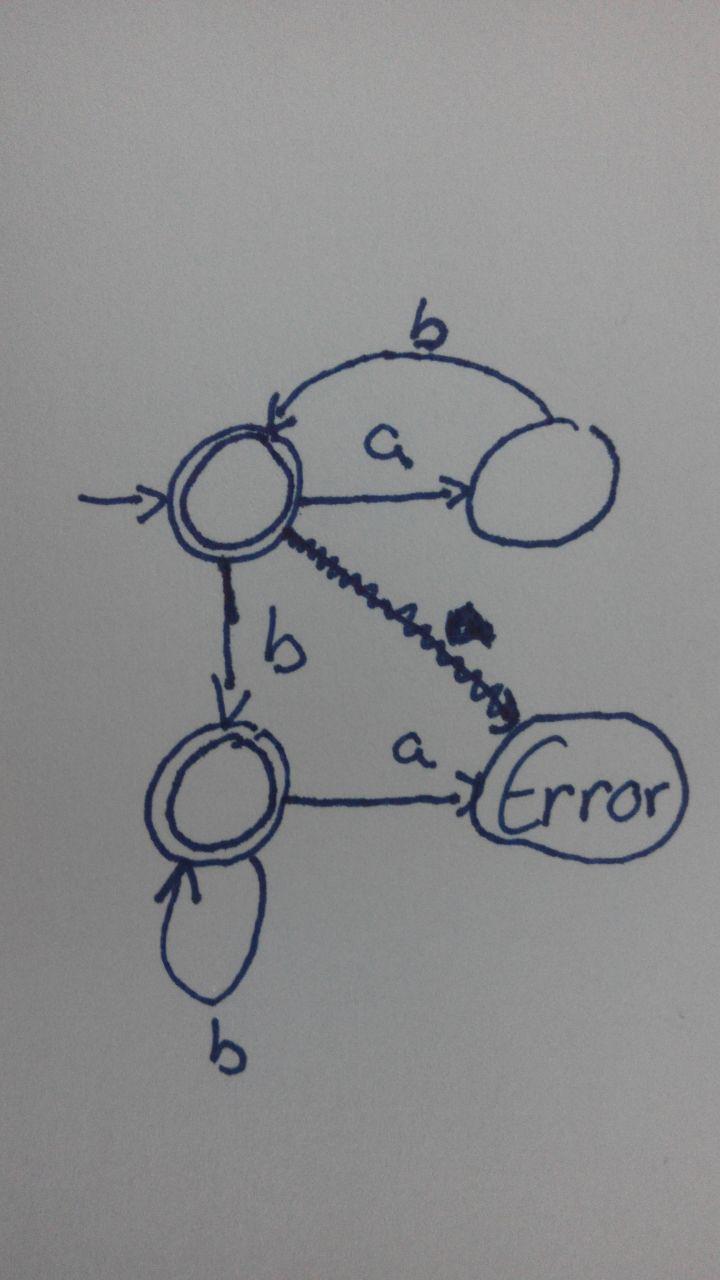 b
a
b
a
Error
b